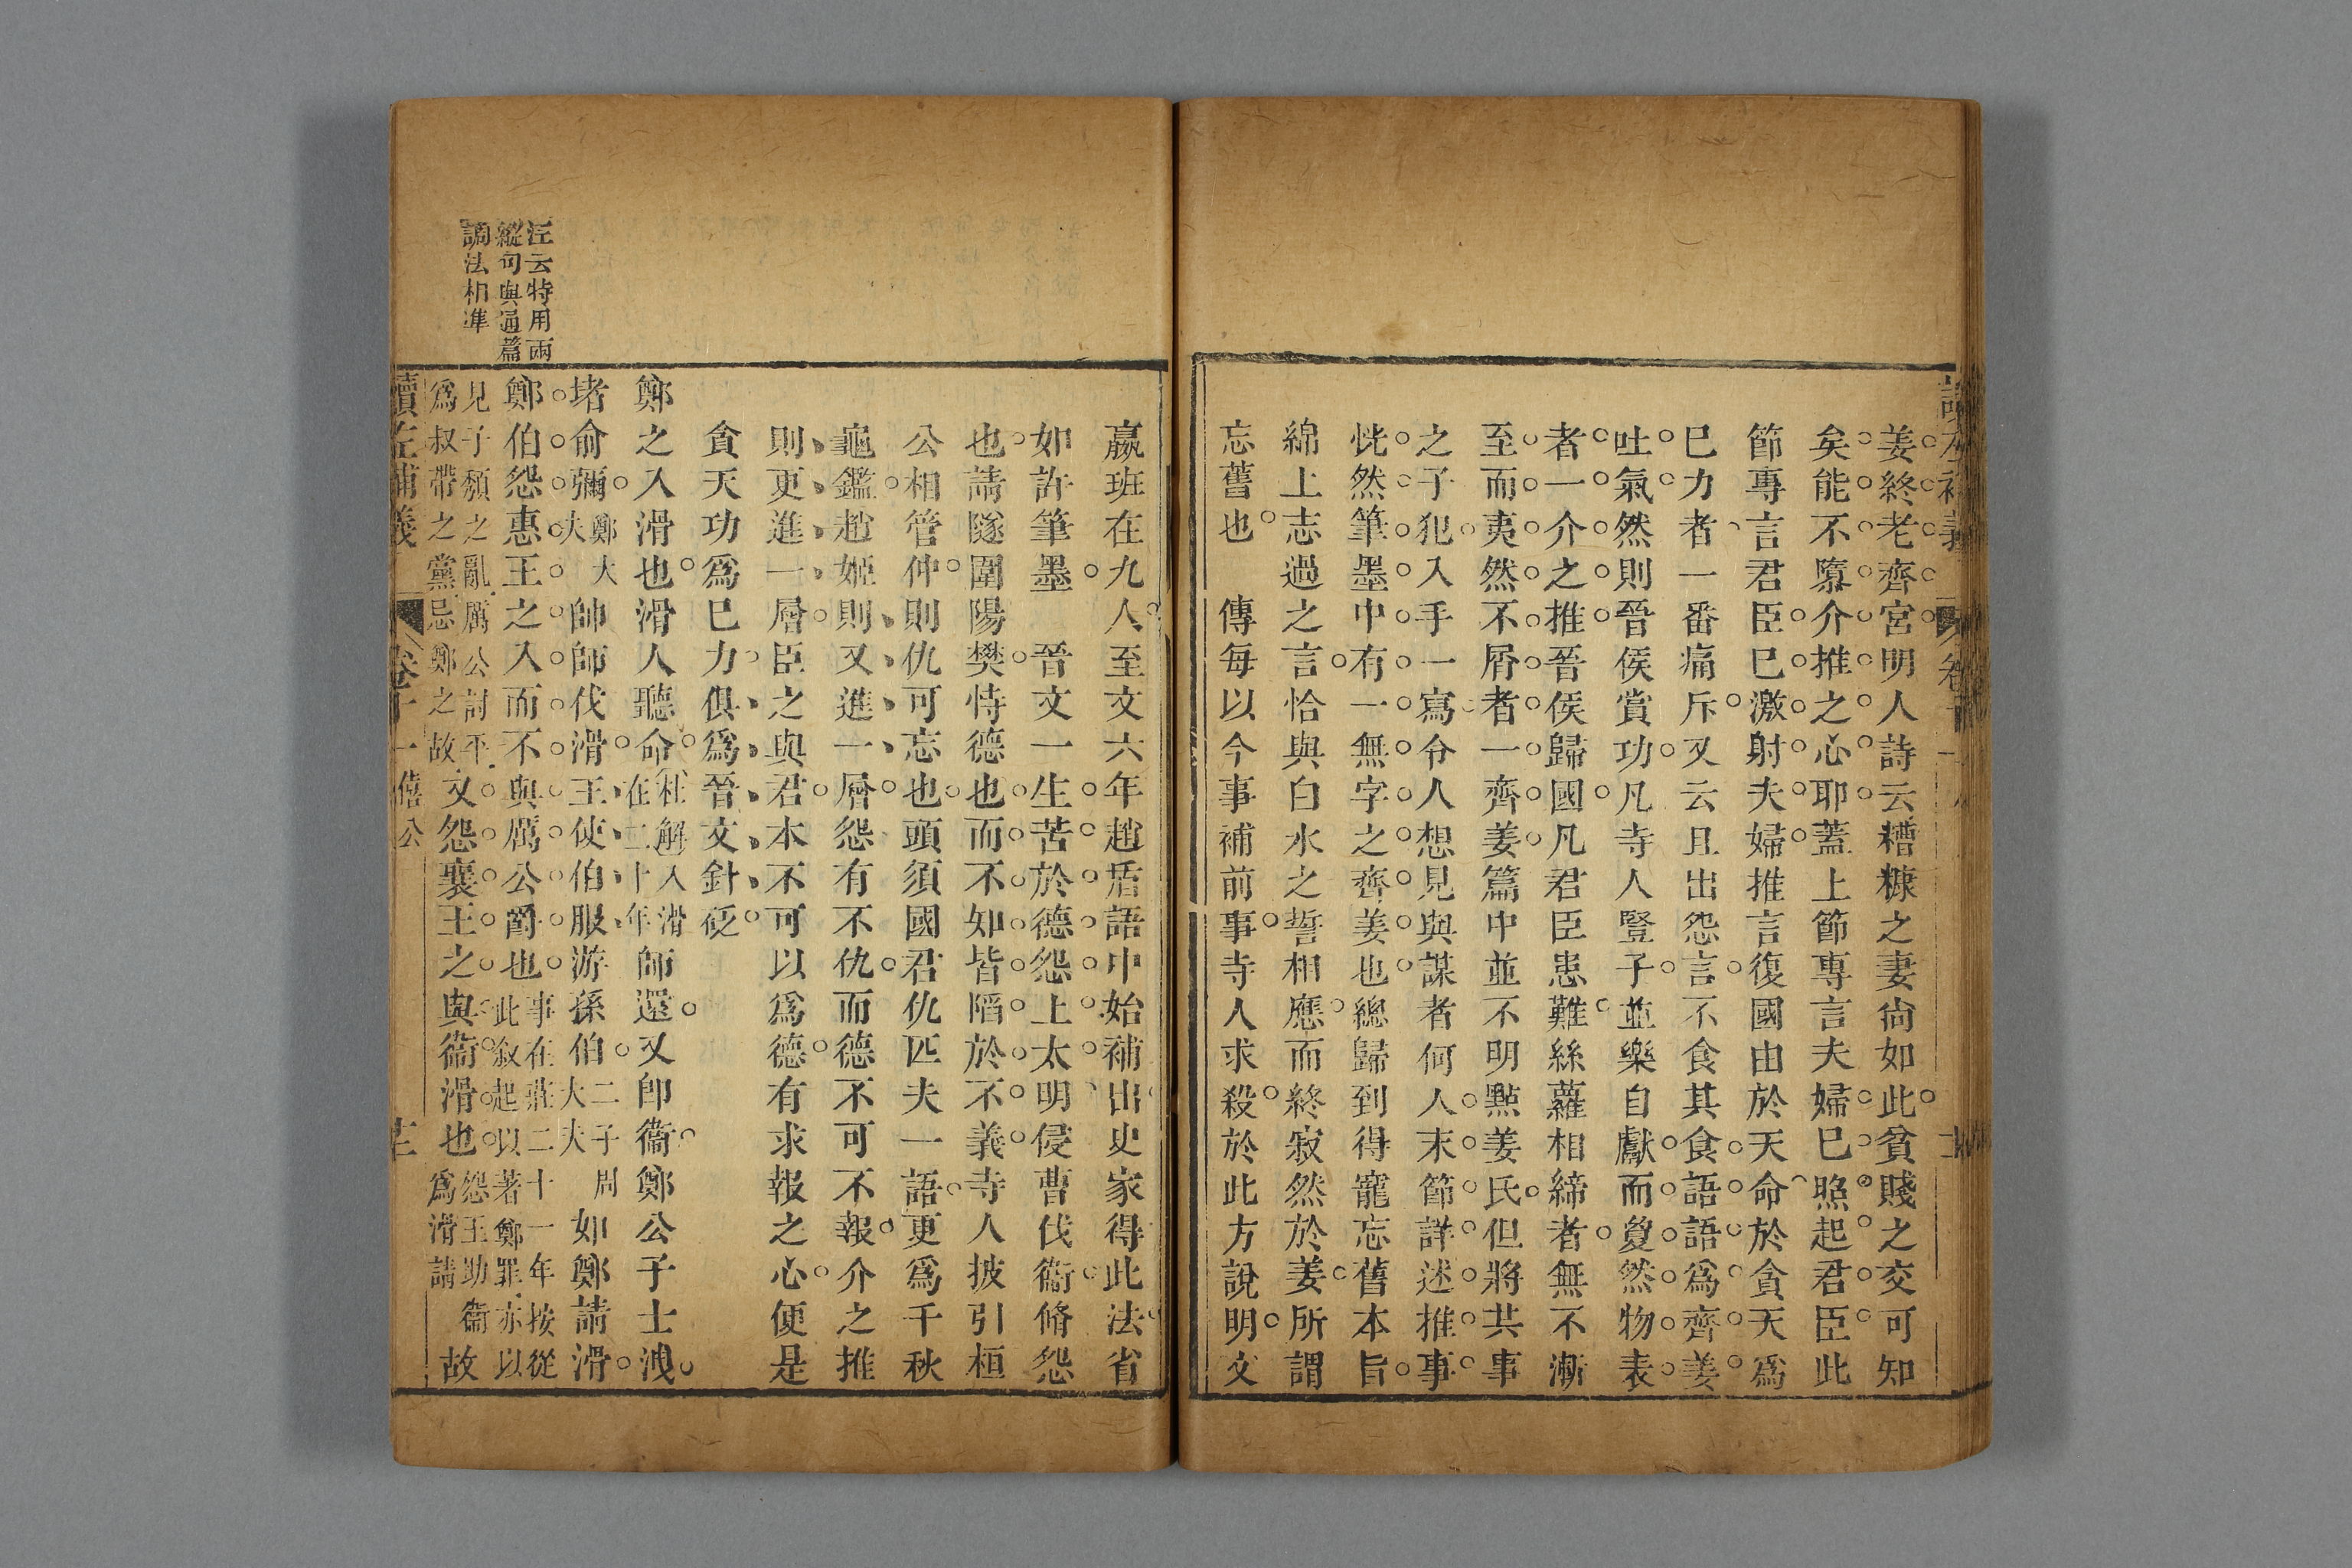 姜終老齊宮明人詩云糟糠之妻尙如此貧賤之交可知
矣能不隳介推之心耶蓋上節專言夫婦已照起君臣此
節專言君臣已激射夫婦推言復國由於天命於貪天爲
已力者一番痛斥又云且出怨言不食其食語語爲齊姜
吐氣然則晉侯賞功凡寺人豎子並樂自獻而夐然物表
者一介之推晉侯歸國凡君臣患難絲蘿相締者無不漸
至而夷然不屑者一齊姜篇中並不明點姜氏但將其事
之子犯入手一寫令人想見與謀者何人末節詳述推事
恍然筆墨中有一無字之齊姜也總歸到得寵忘舊本旨
綿上志過之言恰與白水之誓相應而終寂然於姜所謂
忘舊也　傳每以今事補前事寺人求殺於此方說明文
嬴班在九人至文六年趙盾語中始補出史家得此法省
如許筆墨　晉文一生苦於德怨上太明侵曹伐衞脩怨
也請隧圍陽樊恃德也而不如皆䧟於不義寺人披引桓
公相管仲則仇可忘也頭須國君仇匹夫一語更爲千秋
龜鑑趙姬則又進一層怨有不仇而德不可不報介之推
則更進一層臣之與君本不可以爲德有求報之心便是
貪天功爲已力俱爲晉文針砭
鄭之入滑也滑人聽命杜解入滑在二十年師還又卽衞鄭公子士洩
堵俞彌鄭大夫帥師伐滑王使伯服游孫伯二子周大夫如鄭請滑
鄭伯怨惠王之入而不與厲公爵也事在莊二十一年按從此敘起以著鄭罪亦以
見子頹之亂厲公討平爲叔帶之黨忌鄭之故又怨襄王之與衞滑也怨王助衞爲滑請故
汪云特用兩
縱句與通篇
譎法相準
讀左補義　卷十一僖公